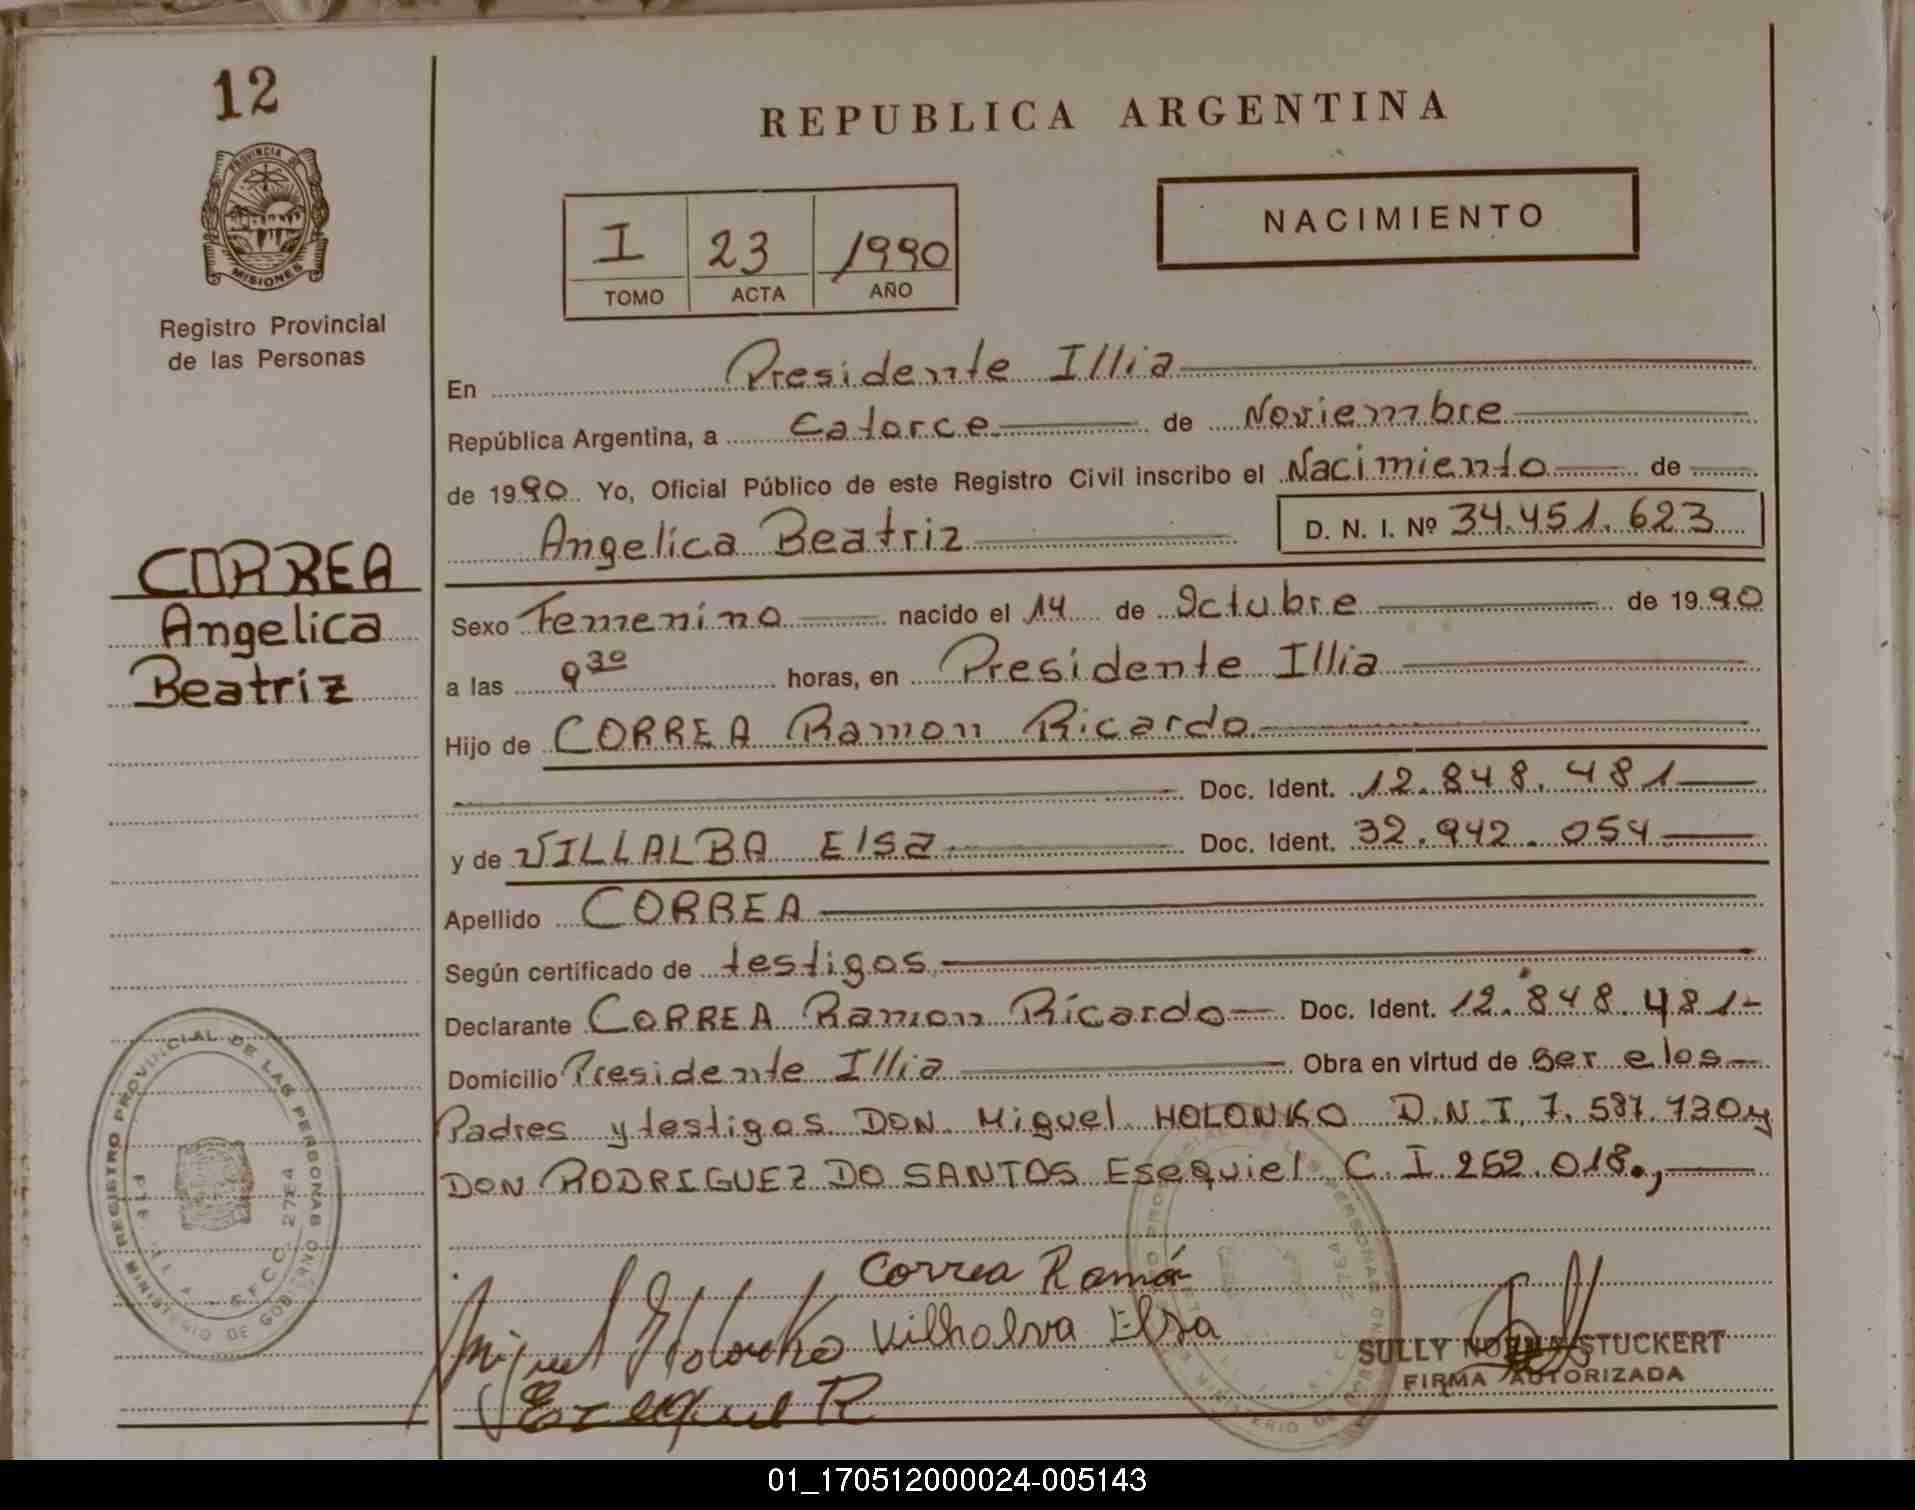 12
PROVINCIA DE
MISIONES
Registro Provincial
de las Personas
CORREA
Angelica
Beatriz
REPUBLICA ARGENTINA
I 23 1990
TOMO ACTA AÑO
NACIMIENTO
En Presidente Illia
República Argentina, a Catorce de Noviembre
de 1990 Yo, Oficial Público de este Registro Civil inscribo el Nacimiento de
Angelica Beatriz D. N. I. Nº 34.451.623
Sexo Femenino nacido el 14 de Octubre de 1990
a las 9 30 horas, en Presidente Illia
Hijo de CORREA Ramon Ricardo
Doc. Ident. 12.848.481
y de VILLALBA Elsa Doc. Ident. 32.942.054
Apellido CORREA
Según certificado de testigos
Declarante CORREA Ramon Ricardo Doc. Ident. 12.848.481
Domicilio Presidente Illia Obra en virtud de ser elos
Padres y testigos DON Miguel HOLONKO D.N.I. 7.587.730 y
DON RODRIGUEZ DO SANTOS Esequiel C.I 252.018.,
Correa Ramón
Miguel Holonko Vilhalva Elsa
Ezequiel R
SULLY NORMA STUCKERT
FIRMA AUTORIZADA
REGISTRO PROVINCIAL DE LAS PERSONAS
MINISTERIO DE GOBIERNO
SECC. 2764
01_170512000024-005143